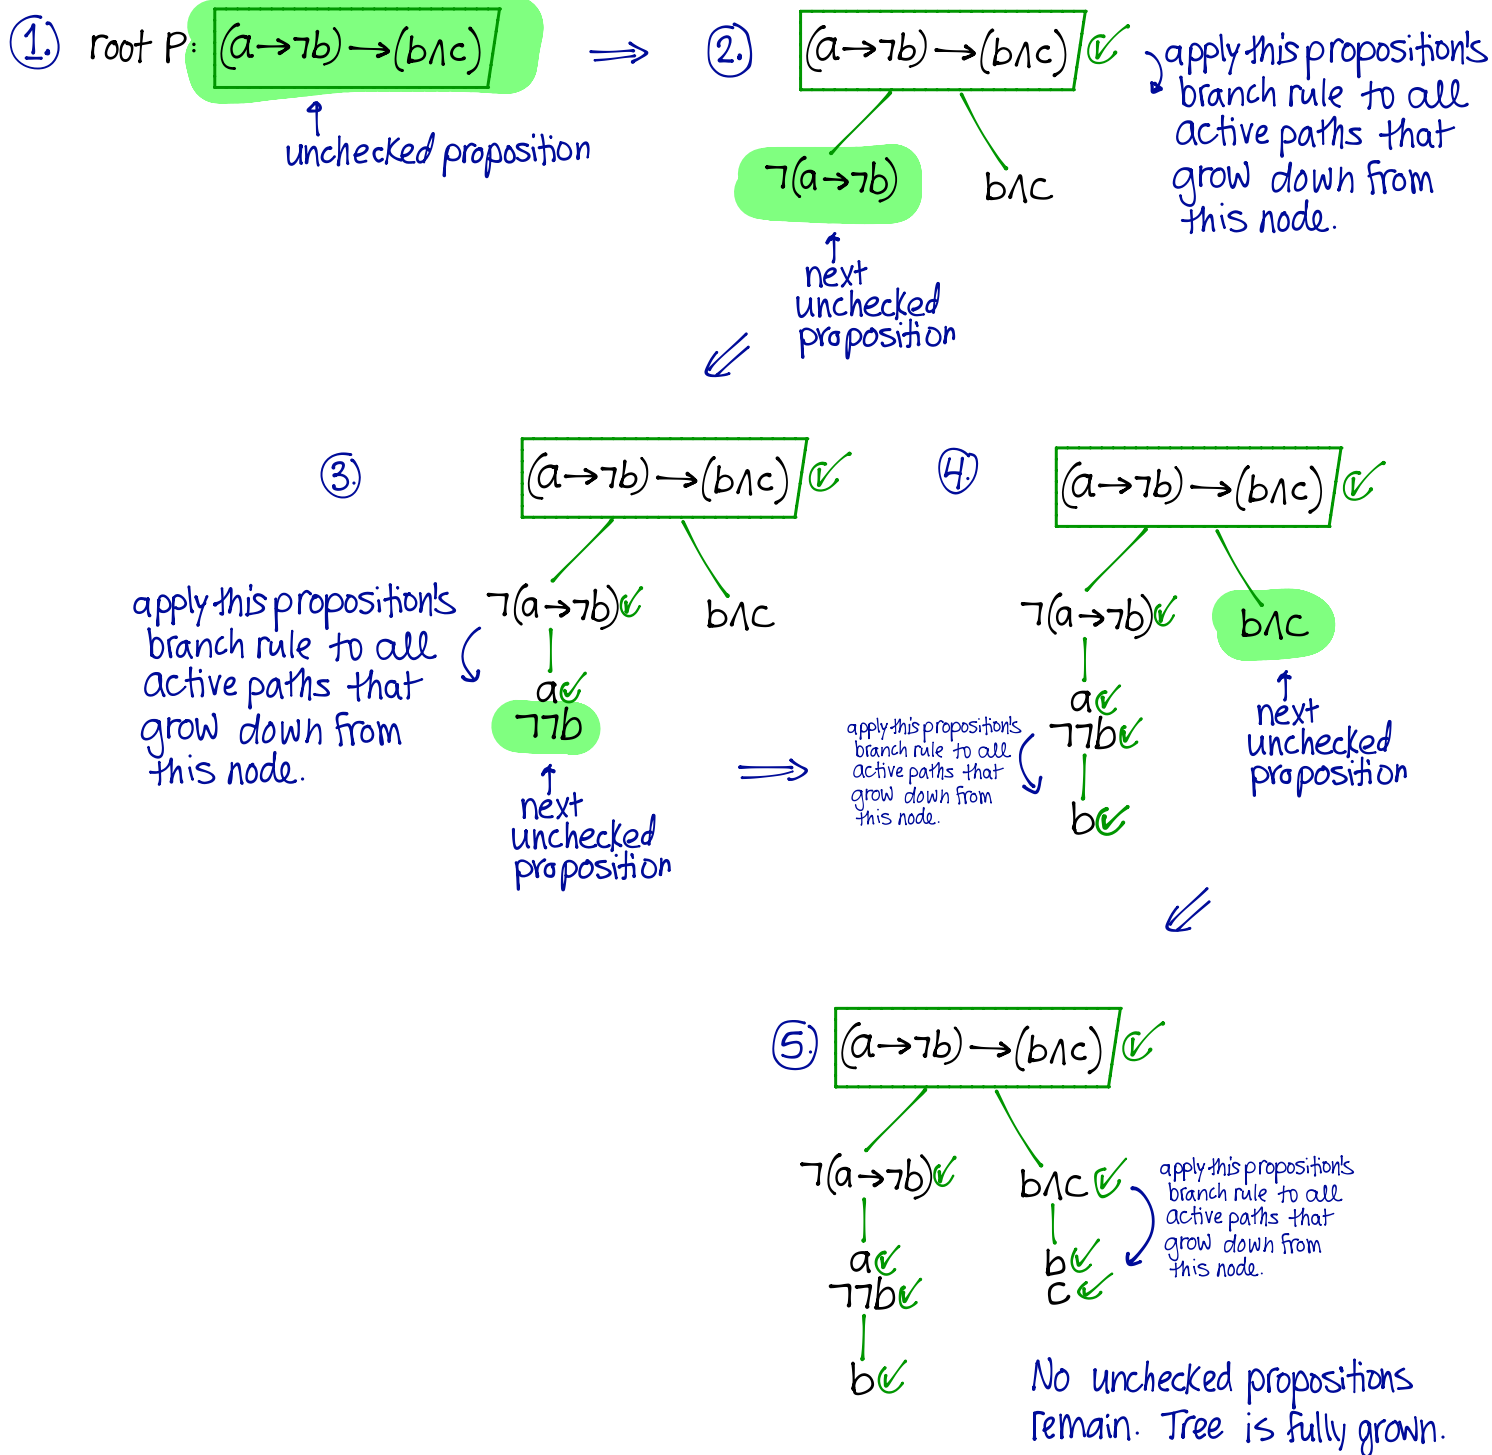 1. root P: (a→¬b)→(b∧c)
unchecked proposition
⇒
2. (a→¬b)→(b∧c) ✓
¬(a→¬b) b∧c
next
unchecked
proposition
apply this proposition's
branch rule to all
active paths that
grow down from
this node.
3. (a→¬b)→(b∧c) ✓
¬(a→¬b)✓ b∧c
a✓
¬¬b
next
unchecked
proposition
apply this proposition's
branch rule to all
active paths that
grow down from
this node.
⇒
4. (a→¬b)→(b∧c) ✓
¬(a→¬b)✓ b∧c
a✓
¬¬b✓
b✓
apply this proposition's
branch rule to all
active paths that
grow down from
this node.
next
unchecked
proposition
5. (a→¬b)→(b∧c) ✓
¬(a→¬b)✓ b∧c ✓
a✓ b✓
¬¬b✓ c✓
b✓
apply this proposition's
branch rule to all
active paths that
grow down from
this node.
No unchecked propositions
remain. Tree is fully grown.